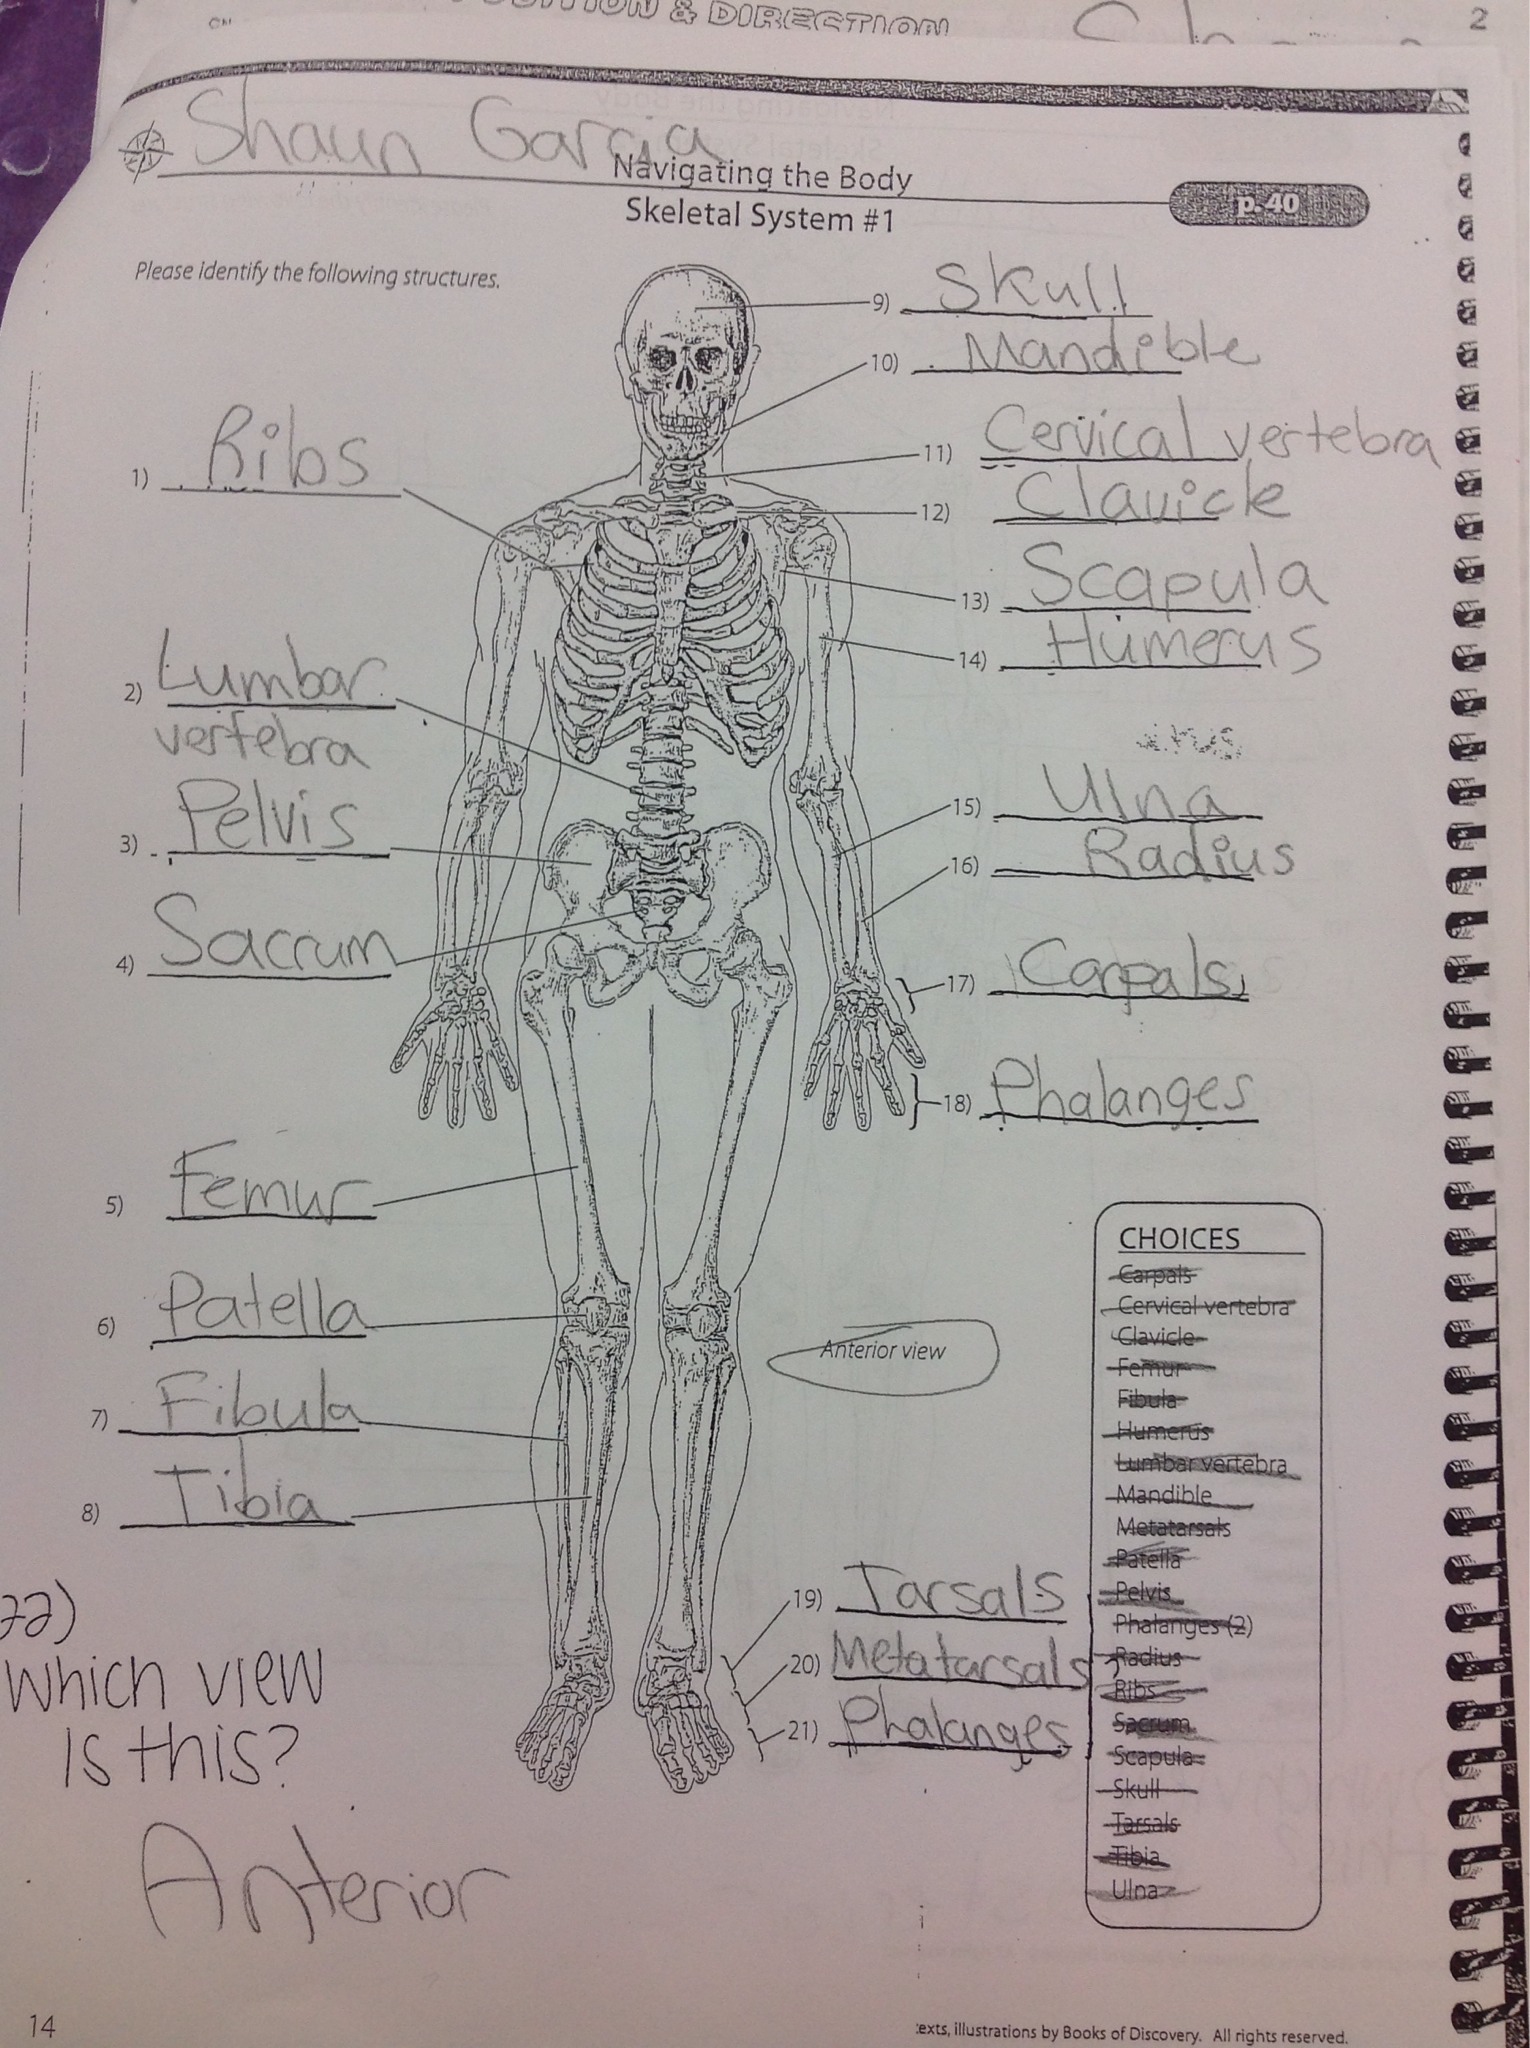 & DIRECTION
2
Shaun Garcia
Navigating the Body
Skeletal System #1
p. 40
Please identify the following structures.
1) Ribs
2) Lumbar
vertebra
3) Pelvis
4) Sacrum
5) Femur
6) Patella
7) Fibula
8) Tibia
9) Skull
10) Mandible
11) Cervical vertebra
12) Clavicle
13) Scapula
14) Humerus
15) Ulna
16) Radius
17) Carpals
18) Phalanges
Anterior view
19) Tarsals
20) Metatarsals
21) Phalanges
CHOICES
Carpals
Cervical vertebra
Clavicle
Femur
Fibula
Humerus
Lumbar vertebra
Mandible
Metatarsals
Patella
Pelvis
Phalanges (2)
Radius
Ribs
Sacrum
Scapula
Skull
Tarsals
Tibia
Ulna
22)
Which view
Is this?
Anterior
14
texts, illustrations by Books of Discovery. All rights reserved.